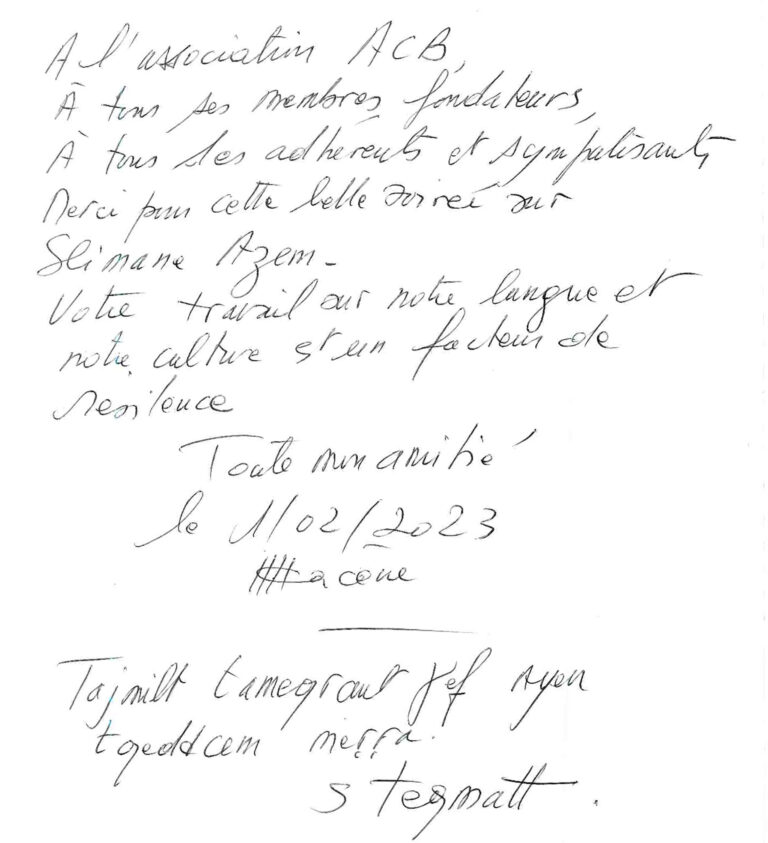 A l'association ACB,
À tous ses membres fondateurs,
À tous ses adhérents et sympatisants
Merci pour cette belle soirée sur
Slimane Azem -
Votre travail sur notre langue et
notre culture est un facteur de
resilence
Toute mon amitié
le 1/02/2023
Tajmilt tameqrant ɣef ayen
tqeddcem meṛṛa.
s tegmatt.